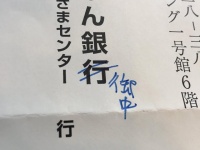 二八ー三八
ング一号館6階
ん銀行
御中
さまセンター 行